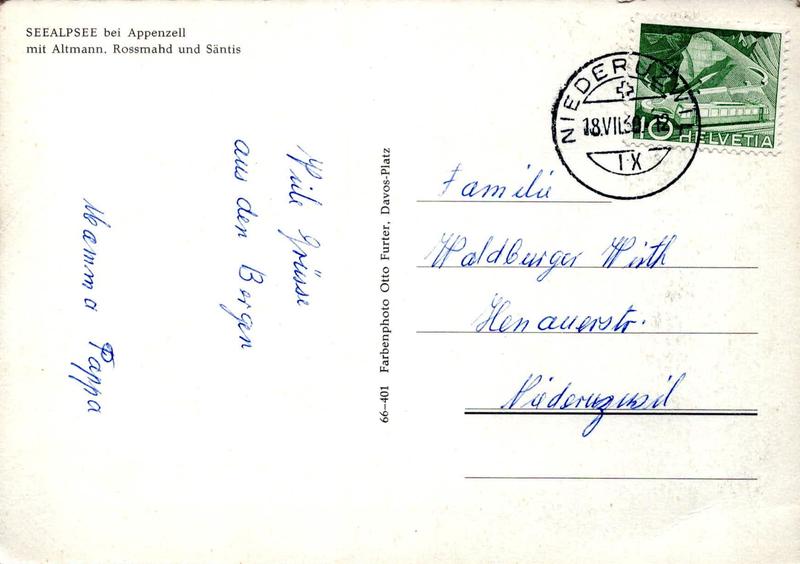 SEEALPSEE bei Appenzell
mit Altmann, Rossmahd und Säntis
Viele Grüsse
aus den Bergen
Mamma Pappa
66–401 Farbenphoto Otto Furter, Davos-Platz
NIEDERUZWIL
18.VII. 12
IX
10 HELVETIA
Familie
Waldburger Wirth
Henauerstr.
Niederuzwil